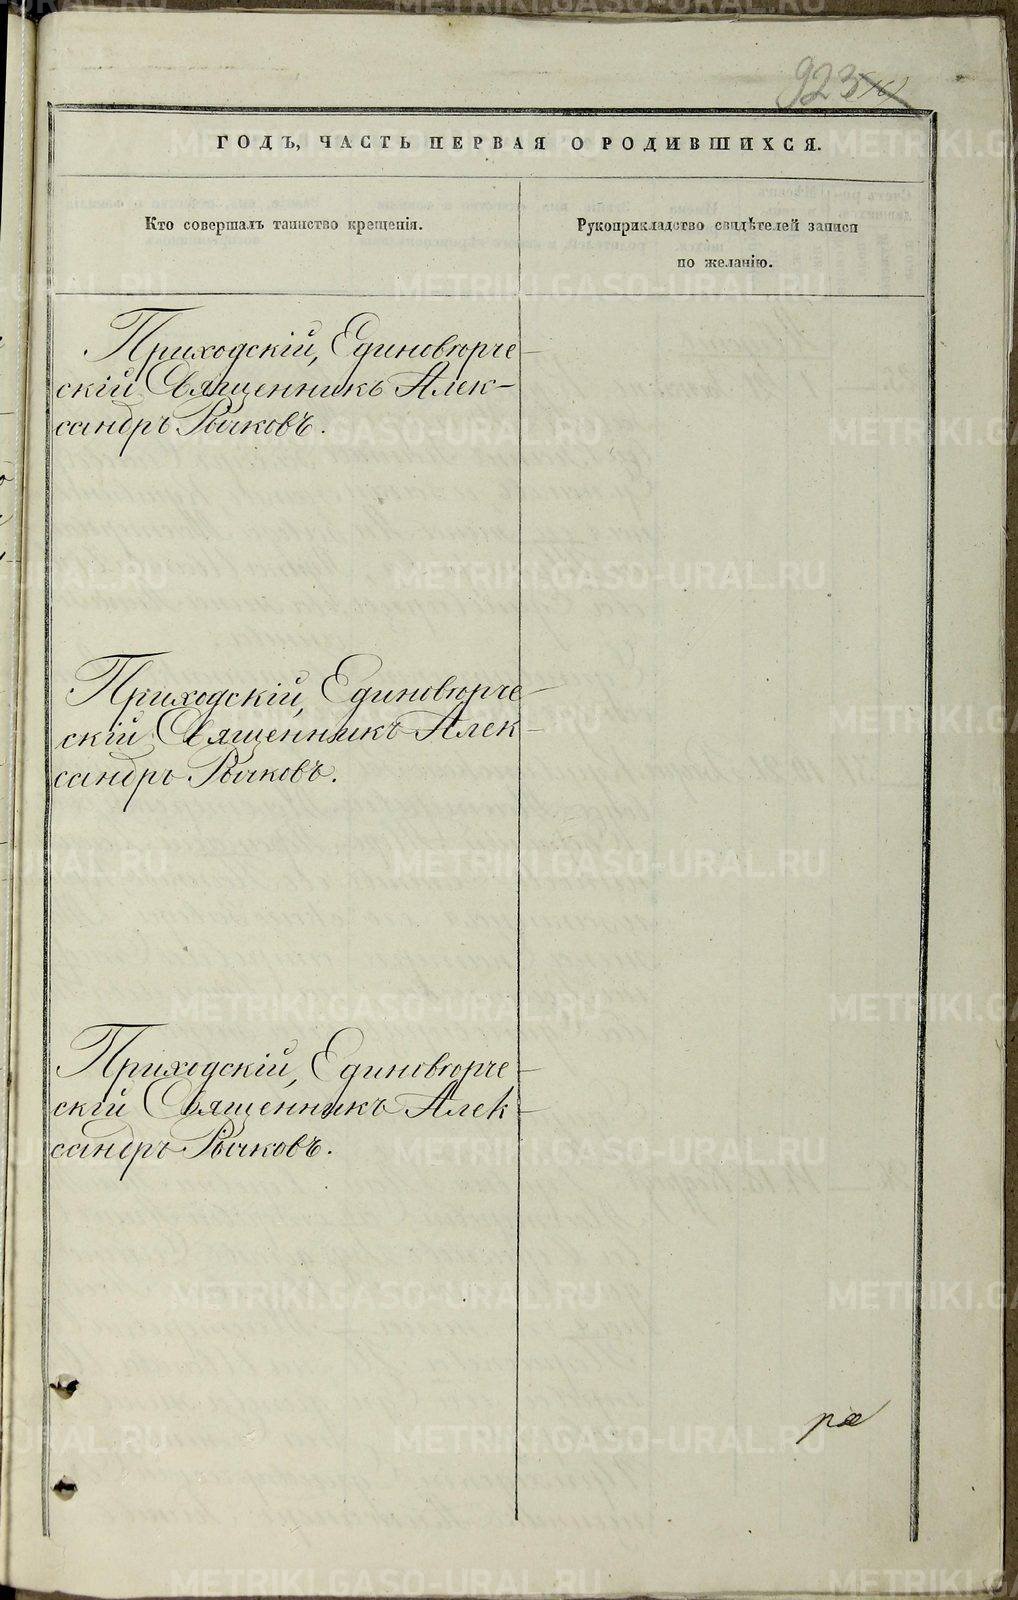 923
ГОДЪ, ЧАСТЬ ПЕРВАЯ О РОДИВШИХСЯ.
Кто совершалъ таинство крещенія.
Рукоприкладство свидѣтелей записи
по желанію.
Приходскій, Единовѣрче-
скій Священникъ Алек-
сандръ Рычковъ.
Приходскій, Единовѣрче-
скій Священникъ Алек-
сандръ Рычковъ.
Приходскій, Единовѣрче-
скій Священникъ Алек-
сандръ Рычковъ.
METRIKI.GASO-URAL.RU